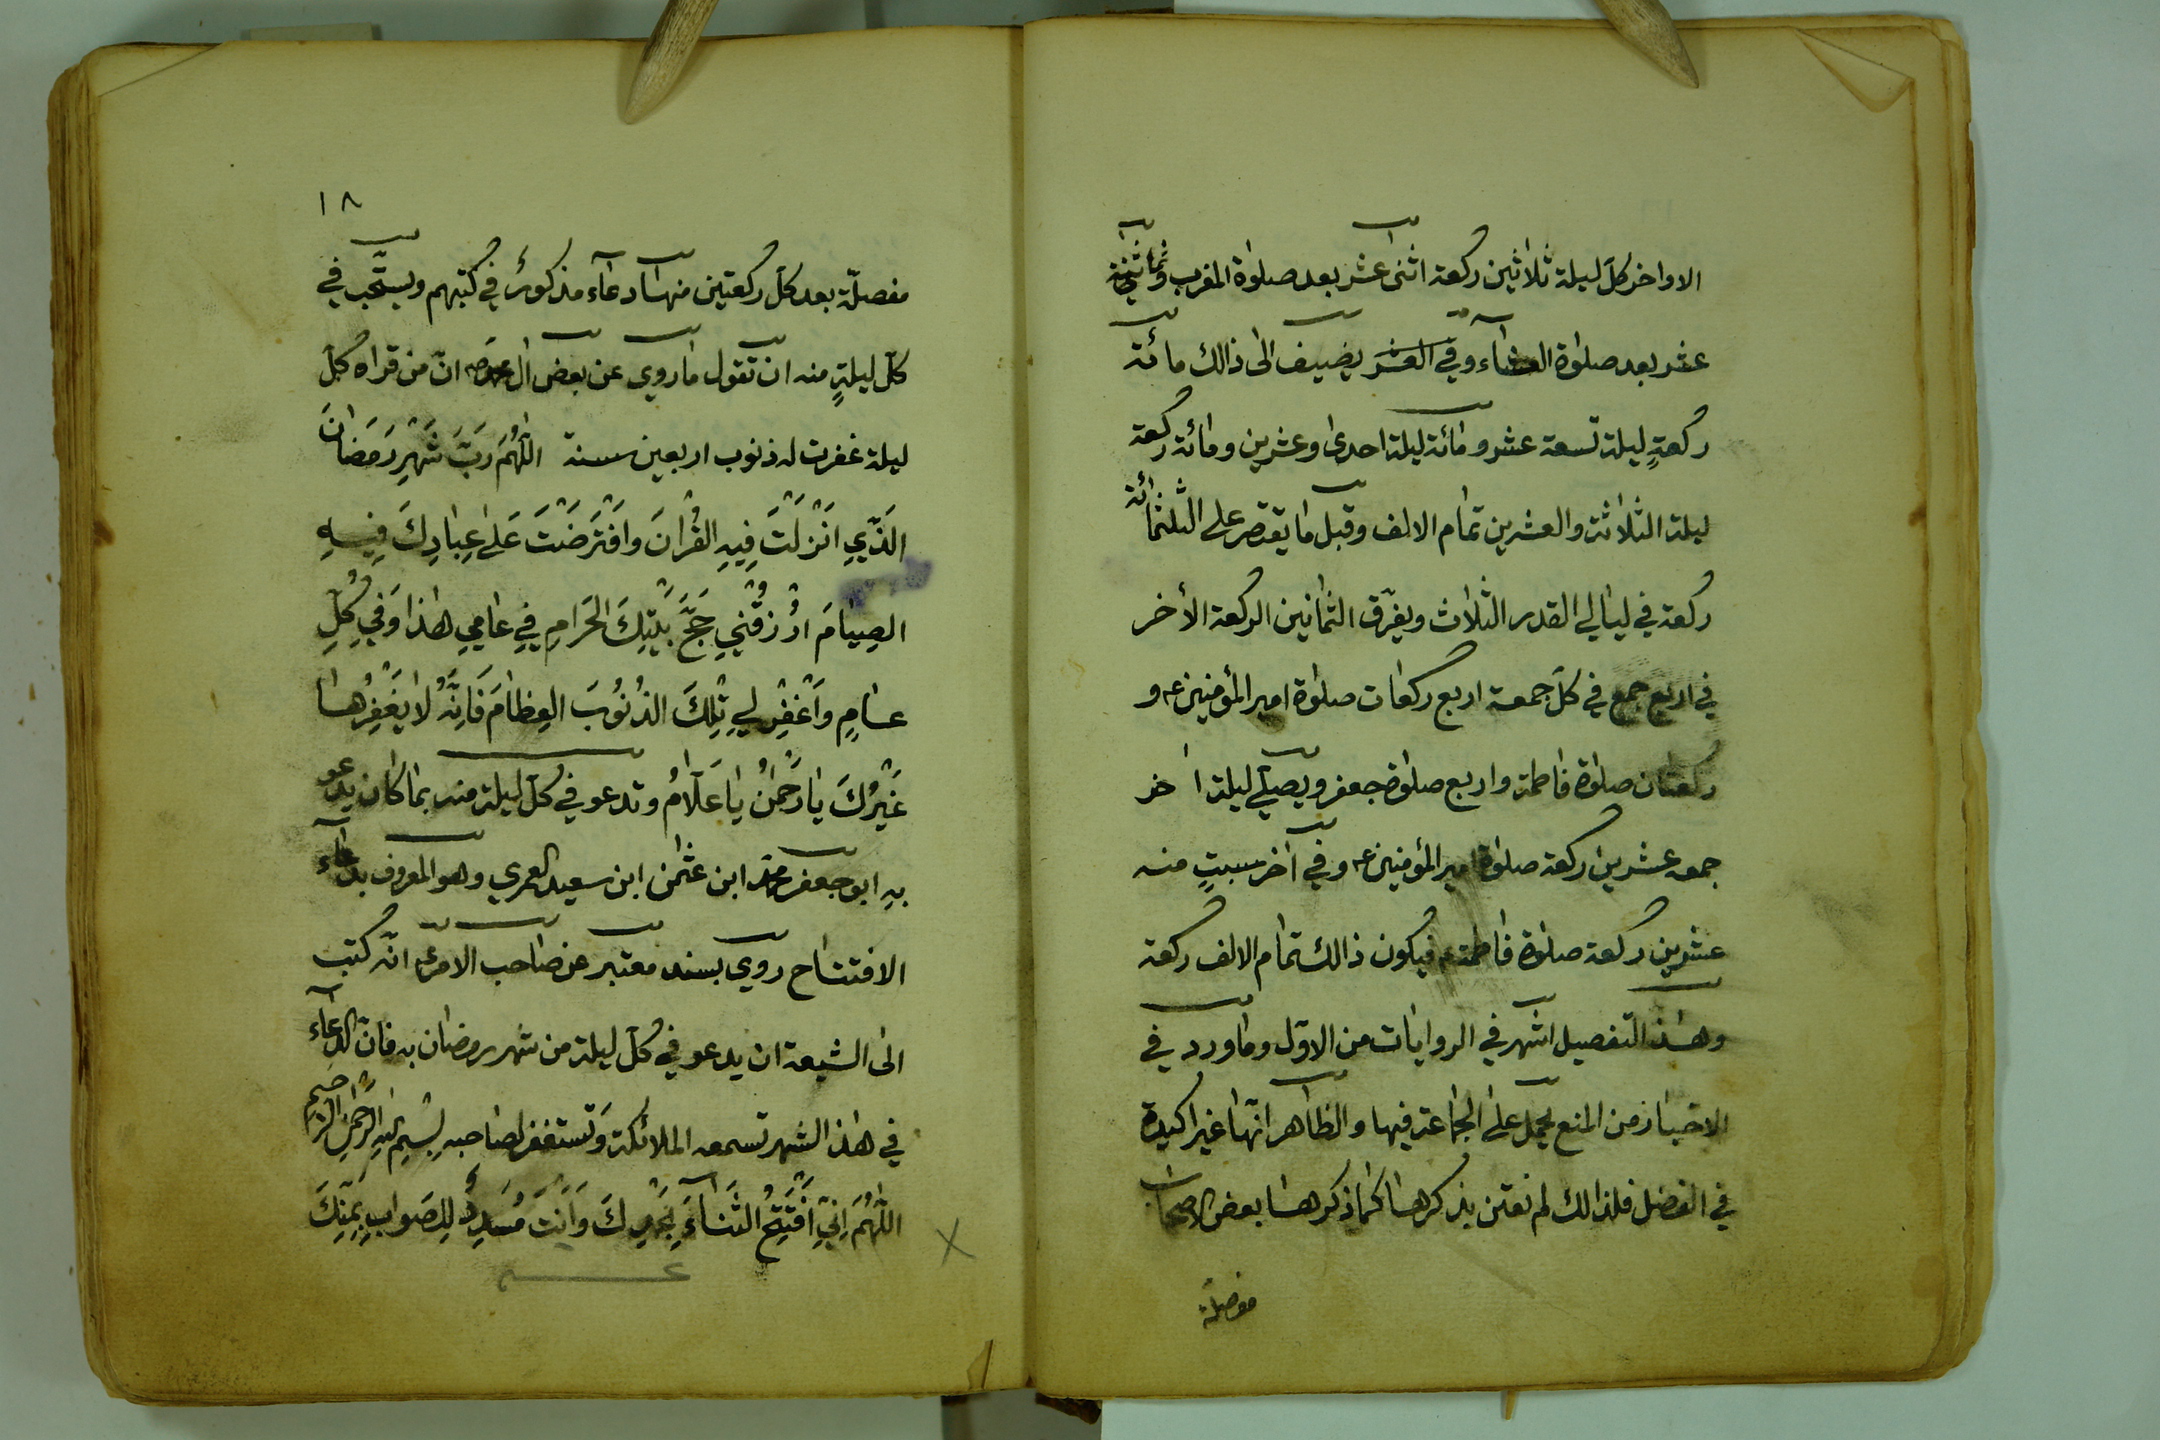 الاواخر كلّ ليلة ثلاثين ركعة اثنى عشر بعد صلوٰة المغرب وثمانية
عشر بعد صلوٰة العشاء وفي العشر يضيف الى ذالك مائة
ركعةٍ ليلة تسعة عشر ومائة ليلة احدى وعشرين ومائة ركعة
ليلة الثلاثة والعشرين تمام الالف وقبل ما يقتصر على الثلثمائة
ركعة في ليالي القدر الثلاث ويفرّق الثمانين الركعة الأخر
في اربع جمع في كلّ جمعة اربع ركعات صلوٰة امير المؤمنين ع و
ركعتان صلوٰة فاطمة واربع صلوٰة جعفر ويصلّي ليلة اخر
جمعه عشرين ركعة صلوٰة امير المؤمنين ع وفي آخر سبتٍ منه
عشرين ركعة صلوٰة فاطمة ع فيكون ذالك تمام الالف ركعة
وهذا التفصيل اشهر في الروايات من الاوّل وما ورد في
الاخبار من المنع يحمل على الجماعة فيها والظاهر انّها غير اكيدة
في الفضل فلذالك لم نعتن بذكرها كما ذكرها بعض الاصحاب
مفصلة
١٨
مفصلّة بعد كلّ ركعتين منها دعاء مذكورٌ في كتبهم ويستحّب في
كلّ ليلةٍ منه ان تقول ما روي عن بعض آل محمد ص انّ من قراه كلّ
ليلة غفرت له ذنوب اربعين سنة اللّٰهُمَ رَبَّ شَهْرِ رَمَضانَ
الَذّي انَزْلَتَ فِيهِ القُرْانَ وَافْتَرَضْتَ عَلىٰ عِبادِكَ فِيهِ
الصِيامَ ارْزقُنْيِ حَجَّ بَيْتِكَ الحَرامِ فيِ عامي هٰذا وَفيِ كُلِّ
عامٍ وَاغْفِرْ لي تِلْكَ الذُنُوبَ العِظامَ فَانَّهُ لا يَغْفِرُها
غَيْرُكَ يا رَحْمٰنُ يا عَلّامُ وتدعو في كلّ ليلة منه بما كان يدعو
به ابو جعفر محمّد ابن عثمٰن ابن سعيد العمري وهو المعروف بدعاء
الافتتاح روي بسند معتبر عن صاحب الامر ع انّه كتب
الى الشيعة ان يدعو في كلّ ليلة من شهر رمضان به فانّ الدعاء
في هذا الشهر تسمعه الملائكة وَتستغفر لصاحبه بِسْمِ اللّٰهِ الرَّحْمٰنِ الرَّحيمِ
اللّٰهُمَ اِنيّ اَفْتَتِحُ الثَناءَ بِحَمْدِكَ وَاَنْتَ مُسَدِدٌ لِلصَوابِ بِمَنِّكَ